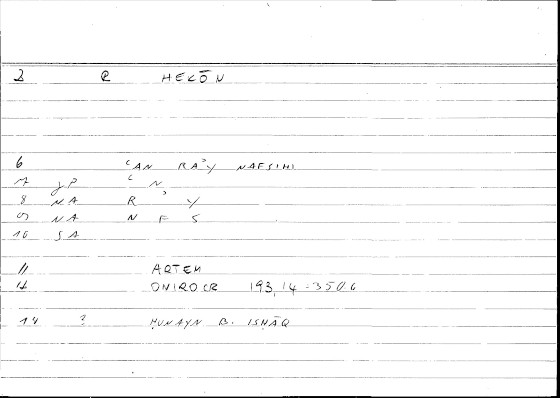 2 R HEKŌN
6 ʿAN RAʾY NAFSIHI
7 JP ʿ N,
8 NA R ʾ Y
9 NA N F S
10 SA
11 ARTEM
12 ONIROCR 193,14-350,6
14 ? ḤUNAYN B. ISḤĀQ